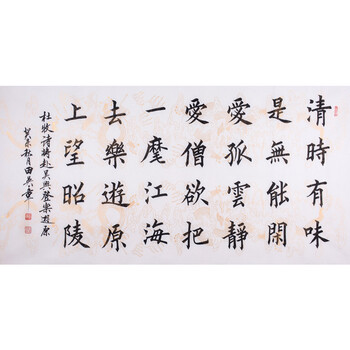 清時有味
是無能閑
愛孤雲靜
愛僧欲把
一麾江海
去樂遊原
上望昭陵
杜牧詩將赴吳興登樂遊原
癸未秋月田英章